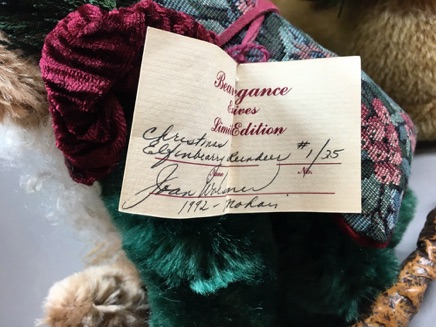 Beargance
Elves
Limit Edition
Christmas
Elfinbeary Reindeer #1/25
Name No.
Joan Woerner
1992 - Mohair